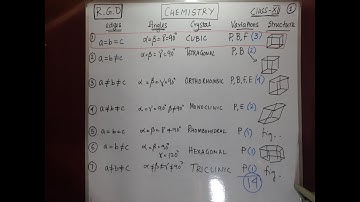 R.G.D CHEMISTRY CLASS-XII 1
edges Angles Crystal Variations Structure
1 a=b=c α=β=γ=90° CUBIC P, B, F (3)
2 a=b≠c α=β=γ=90° TETRAGONAL P, B (2)
3 a≠b≠c α=β=γ=90° ORTHORHOMBIC P, B, F, E (4)
4 a≠b≠c α=γ=90° β≠90° MONOCLINIC P, E (2)
5 a=b=c α=β=γ≠90° RHOMBOHEDRAL P (1) fig..
6 a=b≠c α=β=90° γ=120° HEXAGONAL P (1)
7 a≠b≠c α≠β≠γ≠90° TRICLINIC P (1) fig..
14